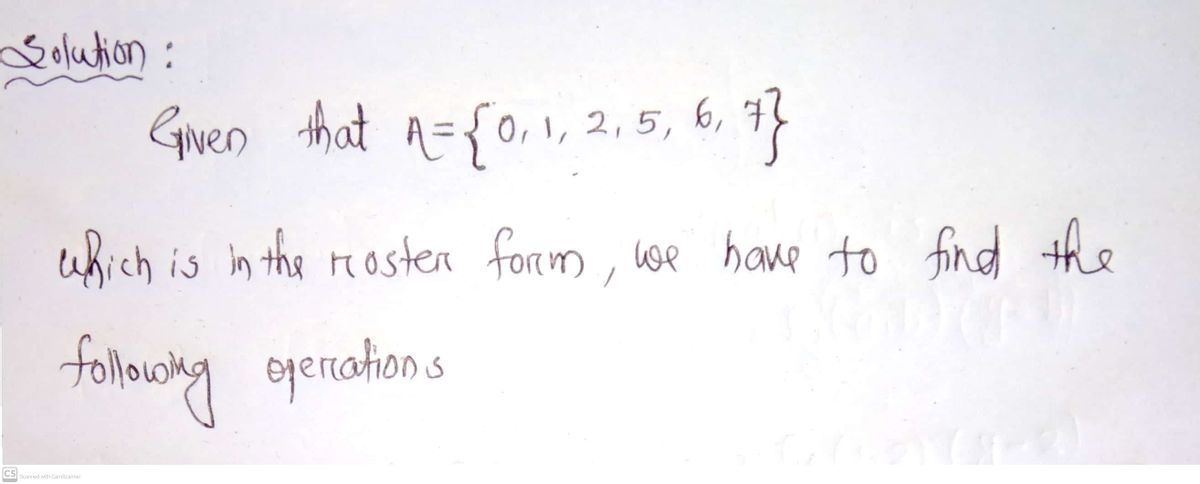 Solution :
Given that A = {0, 1, 2, 5, 6, 7}
which is in the roster form, we have to find the
following operations
CS Scanned with CamScanner